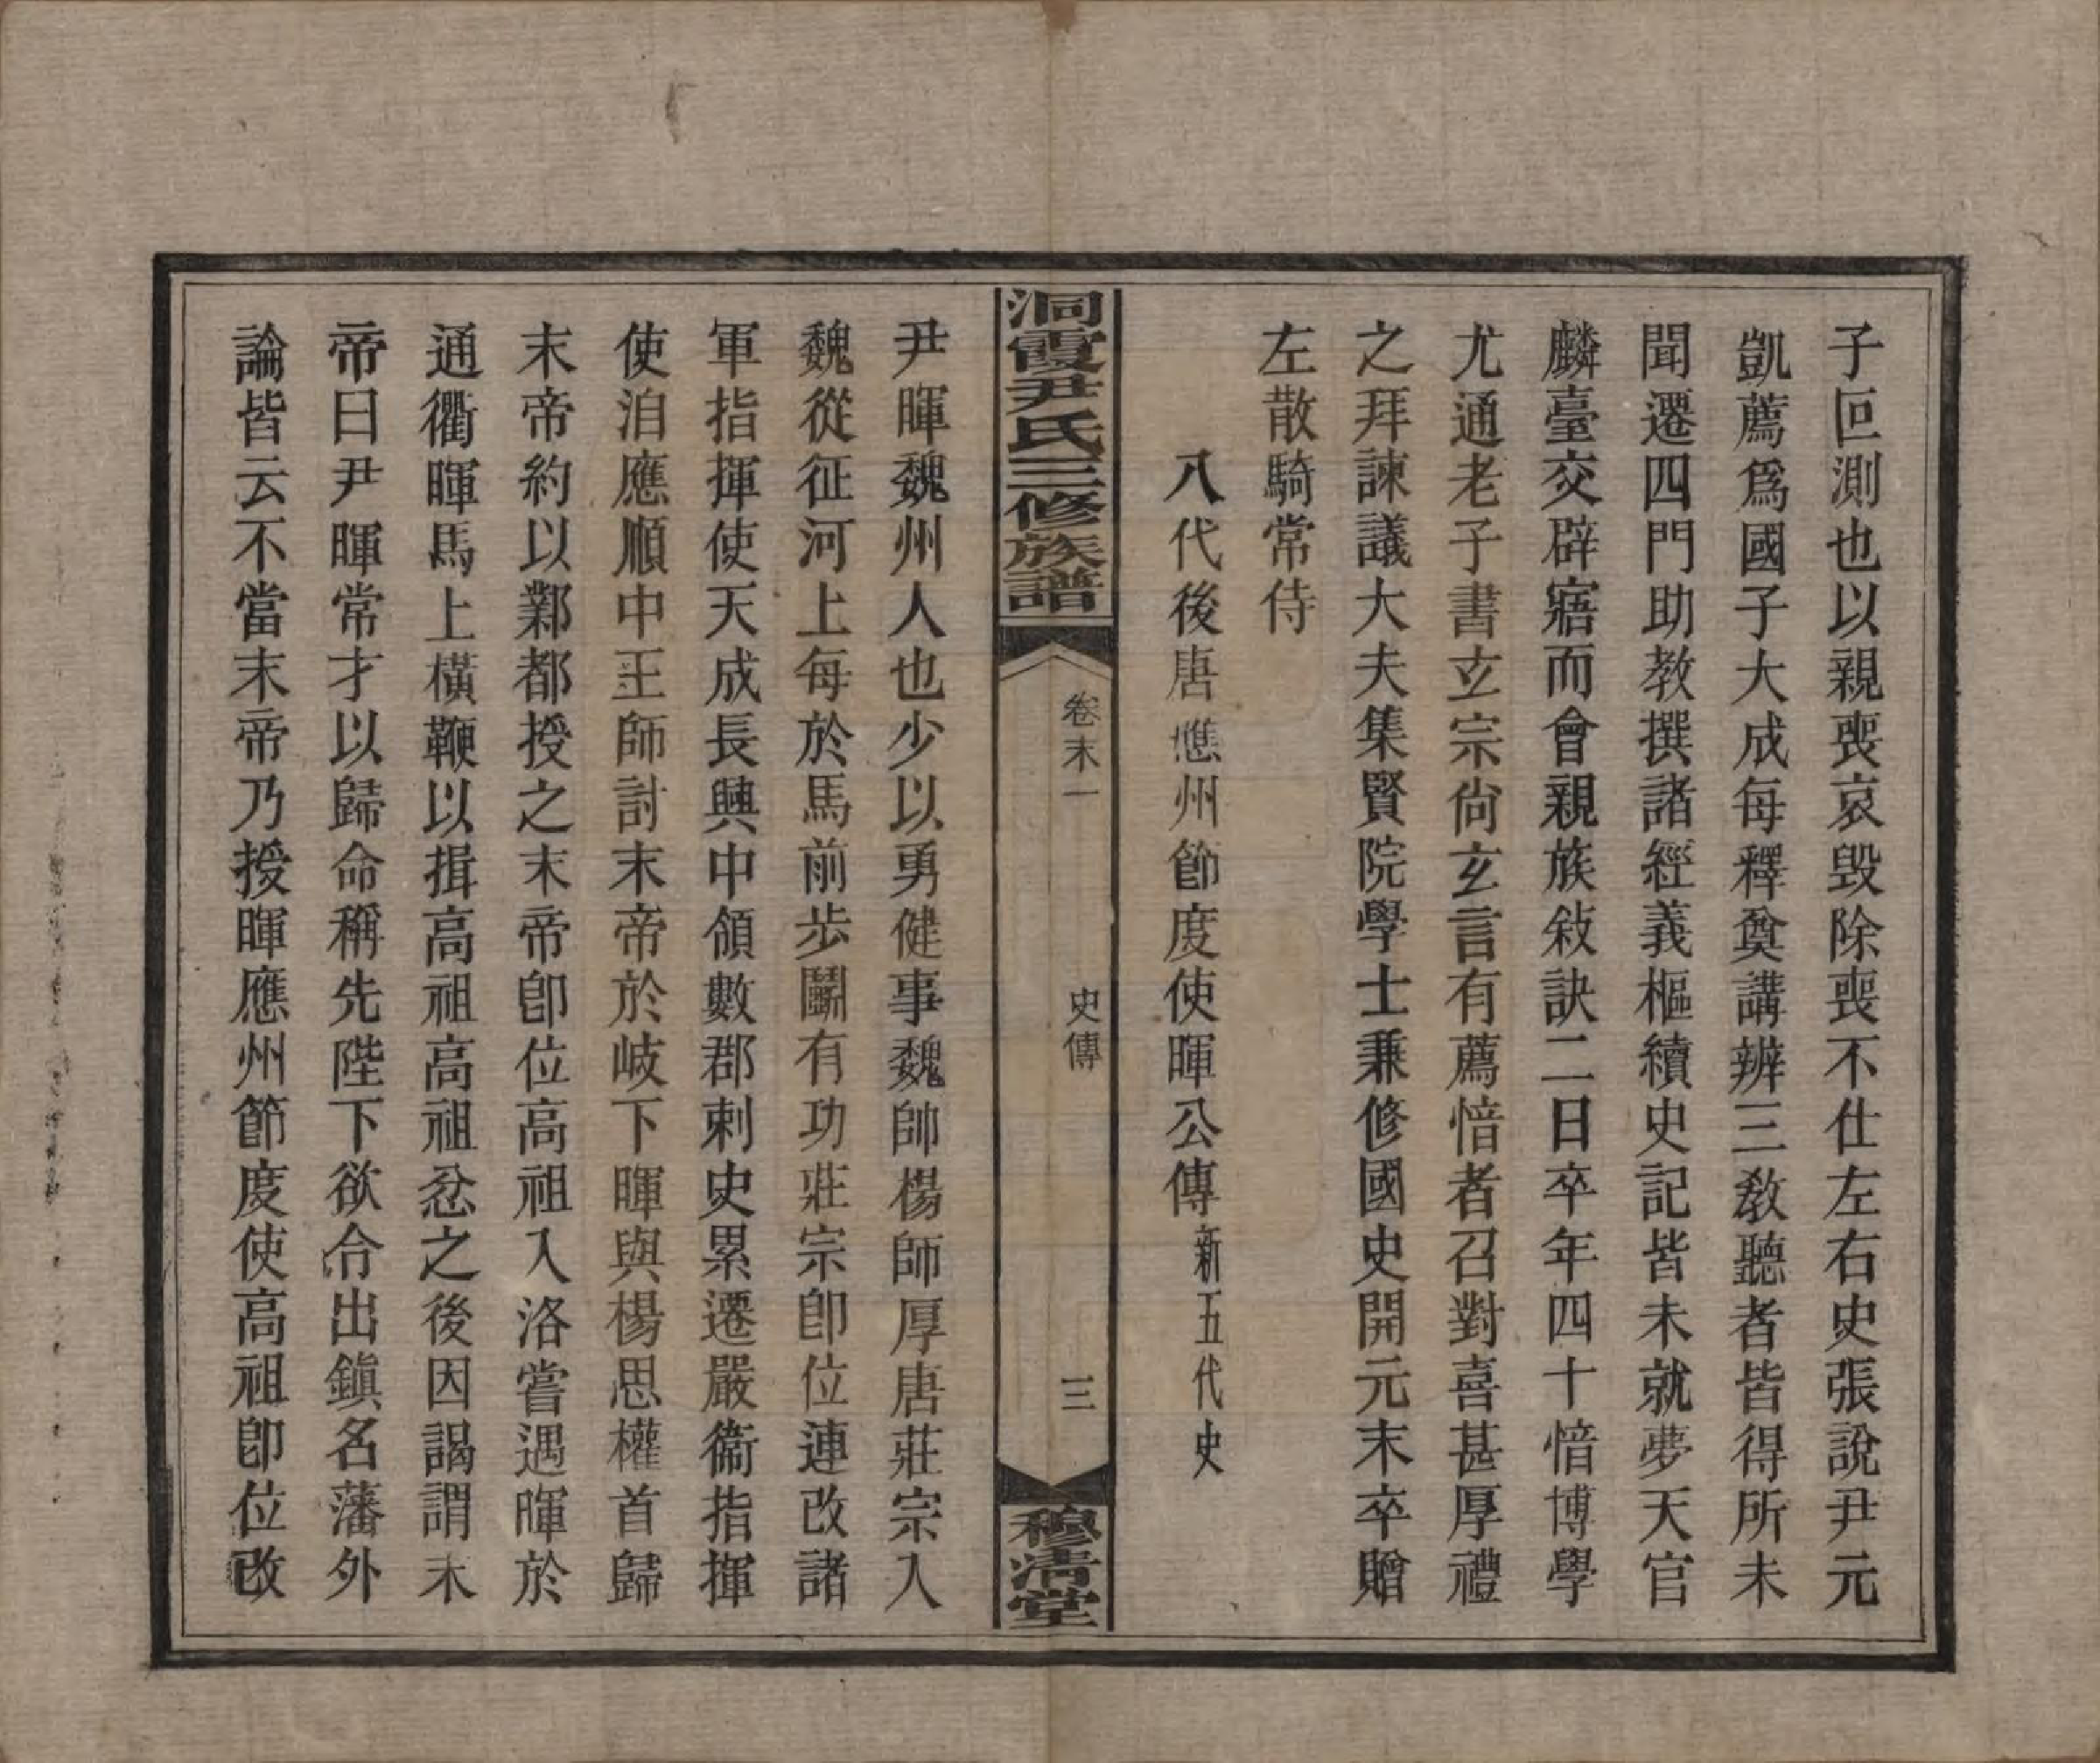 子叵測也以親喪哀毀除喪不仕左右史張說尹元
凱薦爲國子大成每釋奠講辨三敎聽者皆得所未
聞遷四門助教撰諸經義樞續史記皆未就夢天官
麟臺交辟寤而會親族敍訣二日卒年四十愔博學
尤通老子書玄宗尙玄言有薦愔者召對喜甚厚禮
之拜諫議大夫集賢院學士兼修國史開元末卒贈
左散騎常侍
八代後唐應州節度使暉公傳新五代史
洞霞尹氏三修族譜
卷末一
史傳
三
穆清堂
尹暉魏州人也少以勇健事魏帥楊師厚唐莊宗入
魏從征河上每於馬前步鬬有功莊宗卽位連改諸
軍指揮使天成長興中領數郡刺史累遷嚴衞指揮
使洎應順中王師討末帝於岐下暉與楊思權首歸
末帝約以鄴都授之末帝卽位高祖入洛嘗遇暉於
通衢暉馬上橫鞭以揖高祖高祖忿之後因謁謂末
帝曰尹暉常才以歸命稱先陛下欲令出鎭名藩外
論皆云不當末帝乃授暉應州節度使高祖卽位改